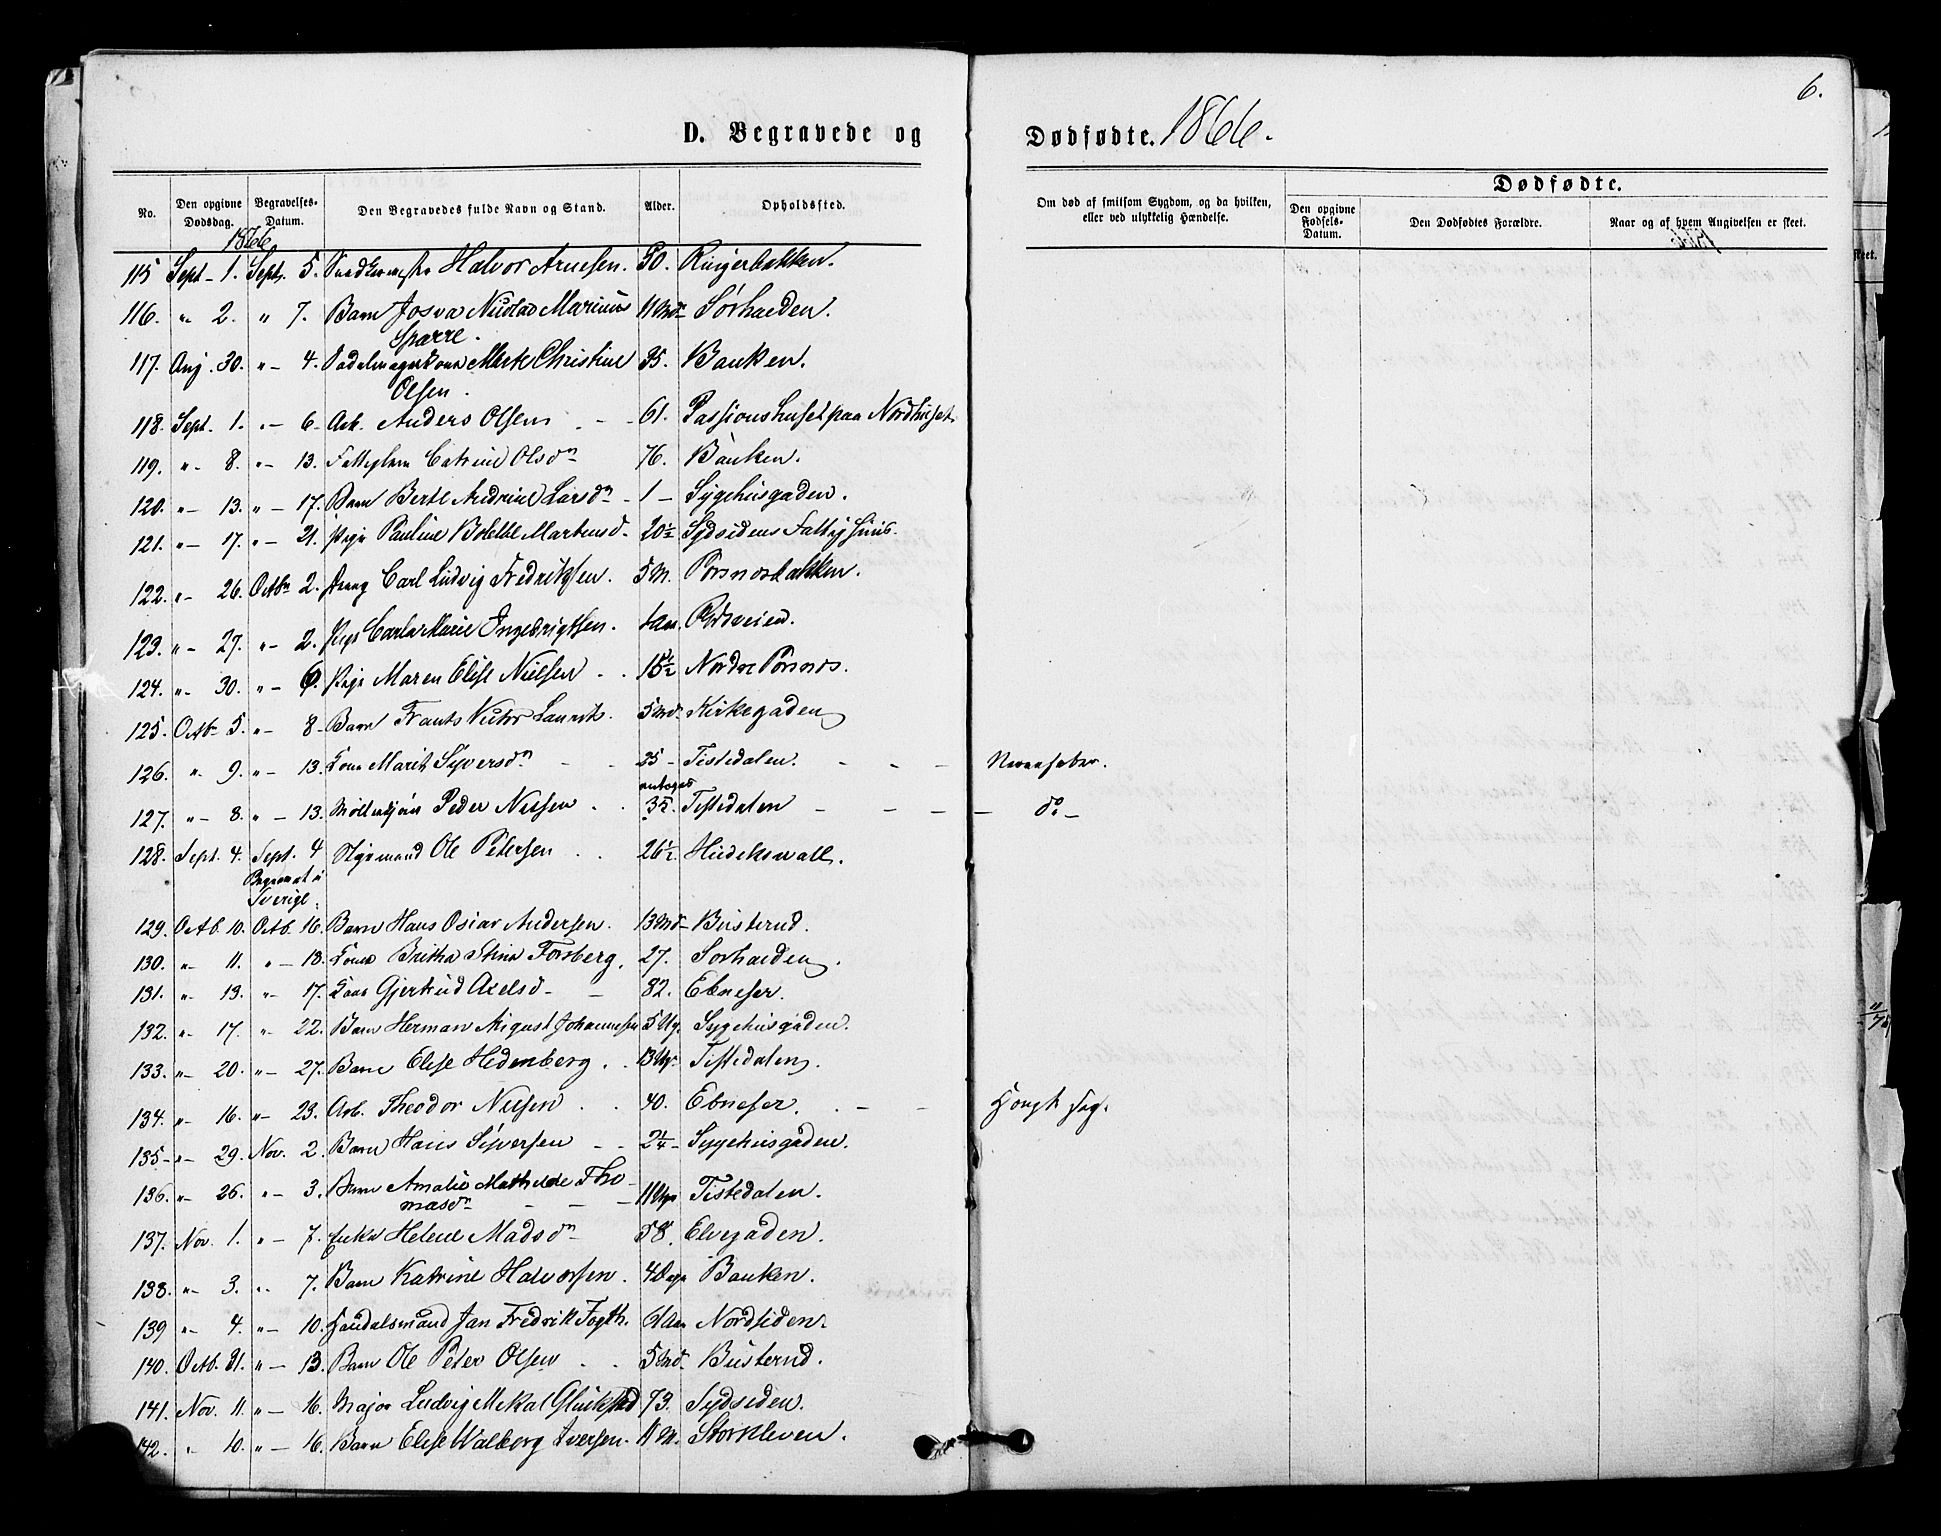 6.
D. Begravede og Dødfødte. 1866.
No. Den opgivne Dødsdag. Begravelses-Datum. Den Begravedes fulde Navn og Stand. Alder. Opholdssted. Om død af smitsom Sygdom, og da hvilken, eller ved ulykkelig Hændelse. Dødfødte. Den opgivne Fødsels-Datum. Den Dødfødtes Forældre. Naar og af hvem Angivelsen er skeet.
1866
115 Sept - 1. Sept. 5. Halvor Arnesen. 50. Ringerbakken.
116. " 2. " 7. Barn Josva Nicolai Marinius 11 Md Sørhalden.
Sparre.
117. Aug. 30. " - 4. Merte Christine 35. Banken.
Olsen.
118. Sept. 1. " - 6. Arb. Anders Olsen 61. Passionshuset paa Nordsiset
119. " - 8. " - 13. Fattiglem Catrine Olsdn 76. Banken.
120. " - 13. " - 17. Barn Berte Andrine Larsdn - 1 - Sygehusgaden.
121. " - 17. " - 21. Pige Pauline Martinsd. 20½ Sydsidens Fattighuus.
122. " - 26. Octbr 2. Dreng Carl Ludvig Fredriksen. 5 M. Porsnesbakken.
123. " - 27. " - 2. Pige Carla Marie Ingebrigtsen. Rødsveien.
124. " - 30. " - 6. Pige Maren Elise Nielsen . . 15½ Nordre Porsnes.
125. Octb. 5. " - 8. Barn Frants Victor Laurits. 5 Md. Kirkegaden
126. " - 9. " - 13. Kone Marit Syversdn - - 35 - Tistedalen. - - - Nervefeber.
127. " - 8. " - 13. Peder Nilsen . . antages 35. Tistedalen - - - - do -
128. Sept. 4. Sept. 4 Styrmand Ole Petersen . . 26½. Hudikswall.
Begravet i
Sverige.
129. Octb. 10. Octb. 16. Barn Hans Oscar Andersen. 13 Md - Busterud.
130. " - 11. " - 18. Kone Britha Stina Forsberg. 27. Sorhalden.
131. " - 13. " - 17. Gjertrud Axelsd - - 82. Ebneser.
132. " - 17. " - 22. Barn Herman August Johannesen 5 Ug. Sygehusgaden.
133. " - 20. " - 27. Barn Elise Hedenberg . . 13 Ug. Tistedalen.
134. " - 16. " - 23. Arb. Theodor Nilsen . . 40. Ebneser. . - -
135 - " - 29. Nov. 2. Barn Hans Syversen - - 2¼ - Sygehusgaden.
136. " - 26. " - 3. Barn Amalie Mathilde Tho- 11 Uger Tistedalen.
masdn - - -
137. Nov. 1. " - 7. Enke Helene Madsdn 58. Elvegaden.
138. " - 3. " - 7. Barn Katrine Halvorsen. 4 Dage Banken.
139 " - 4. " - 10. Handelsmand Jan Fredrik Fogth. Nordsiden.
140. Octb. 31. " - 13. Barn Ole Peter Olsen . . 5 Md. Busterud.
141. Nov. 11. " - 16. Major Ludvig Mekal Gluckstad 73. Sydsiden.
142. " 10. " - 16. Barn Elise Walborg Iversen. 11 M. Storkleven.